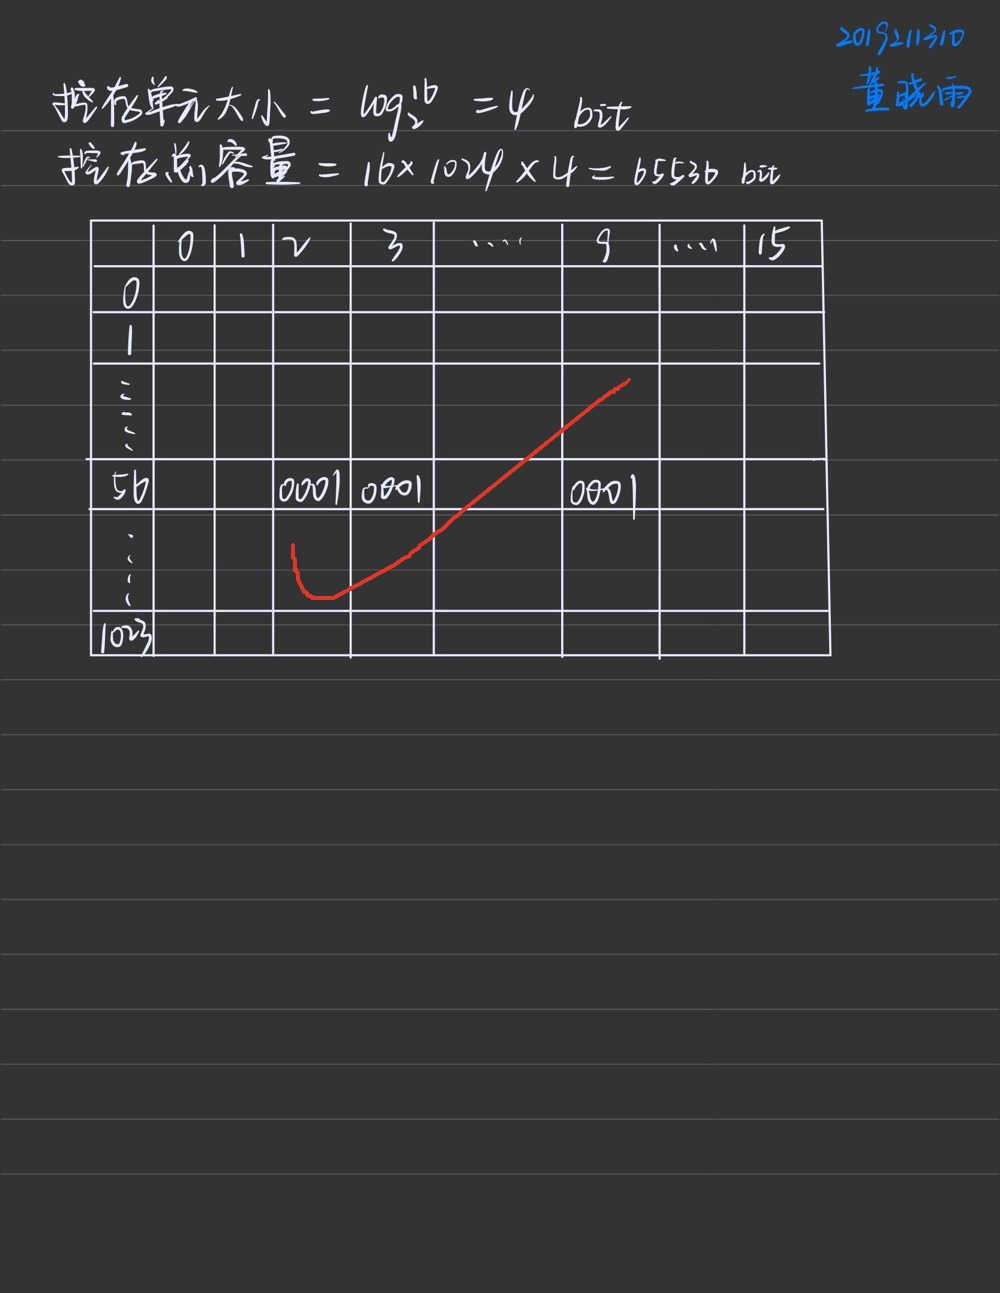 2019211310
董晓雨
控存单元大小 = log₂16 = 4 bit
控存总容量 = 16×1024×4 = 65536 bit
0 1 2 3 ..... 9 ..... 15
0
1
56 0001 0001 0001
1023